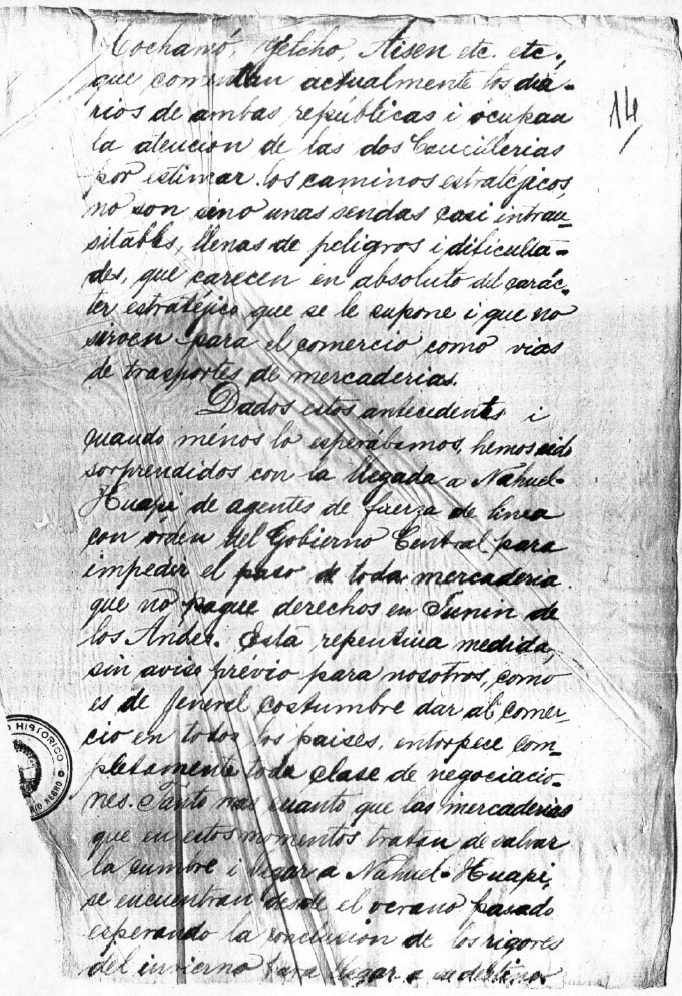 Cochamó, Yelcho, Aisen etc. etc.,
que comentan actualmente los dia-
rios de ambas repúblicas i ocupan
la atencion de las dos Cancillerias
por estimar los caminos estratéjicos,
no son sino unas sendas casi intran-
sitables, llenas de peligros i dificulta-
des, que carecen en absoluto del carác-
ter estratéjico que se le supone i que no
sirven para el comercio como vias
de trasportes de mercaderias.
Dados estos antecedentes i
cuando ménos lo esperábamos, hemos sido
sorprendidos con la llegada a Nahuel-
Huapi de agentes de fuerza de linea
con órden del Gobierno Central para
impedir el paso de toda mercaderia
que no pague derechos en Junin de
los Andes. Esta repentina medida,
sin aviso prévio para nosotros, como
es de jeneral costumbre dar al comer-
cio en todos los paises, entorpece com-
pletamente toda clase de negociacio-
nes. Tanto mas cuanto que las mercaderias
que en estos momentos tratan de salvar
la cumbre i llegar a Nahuel-Huapi,
se encuentran desde el verano pasado
esperando la conclusion de los rigores
del invierno para llegar a su destino.
14
HISTORICO
RIO NEGRO